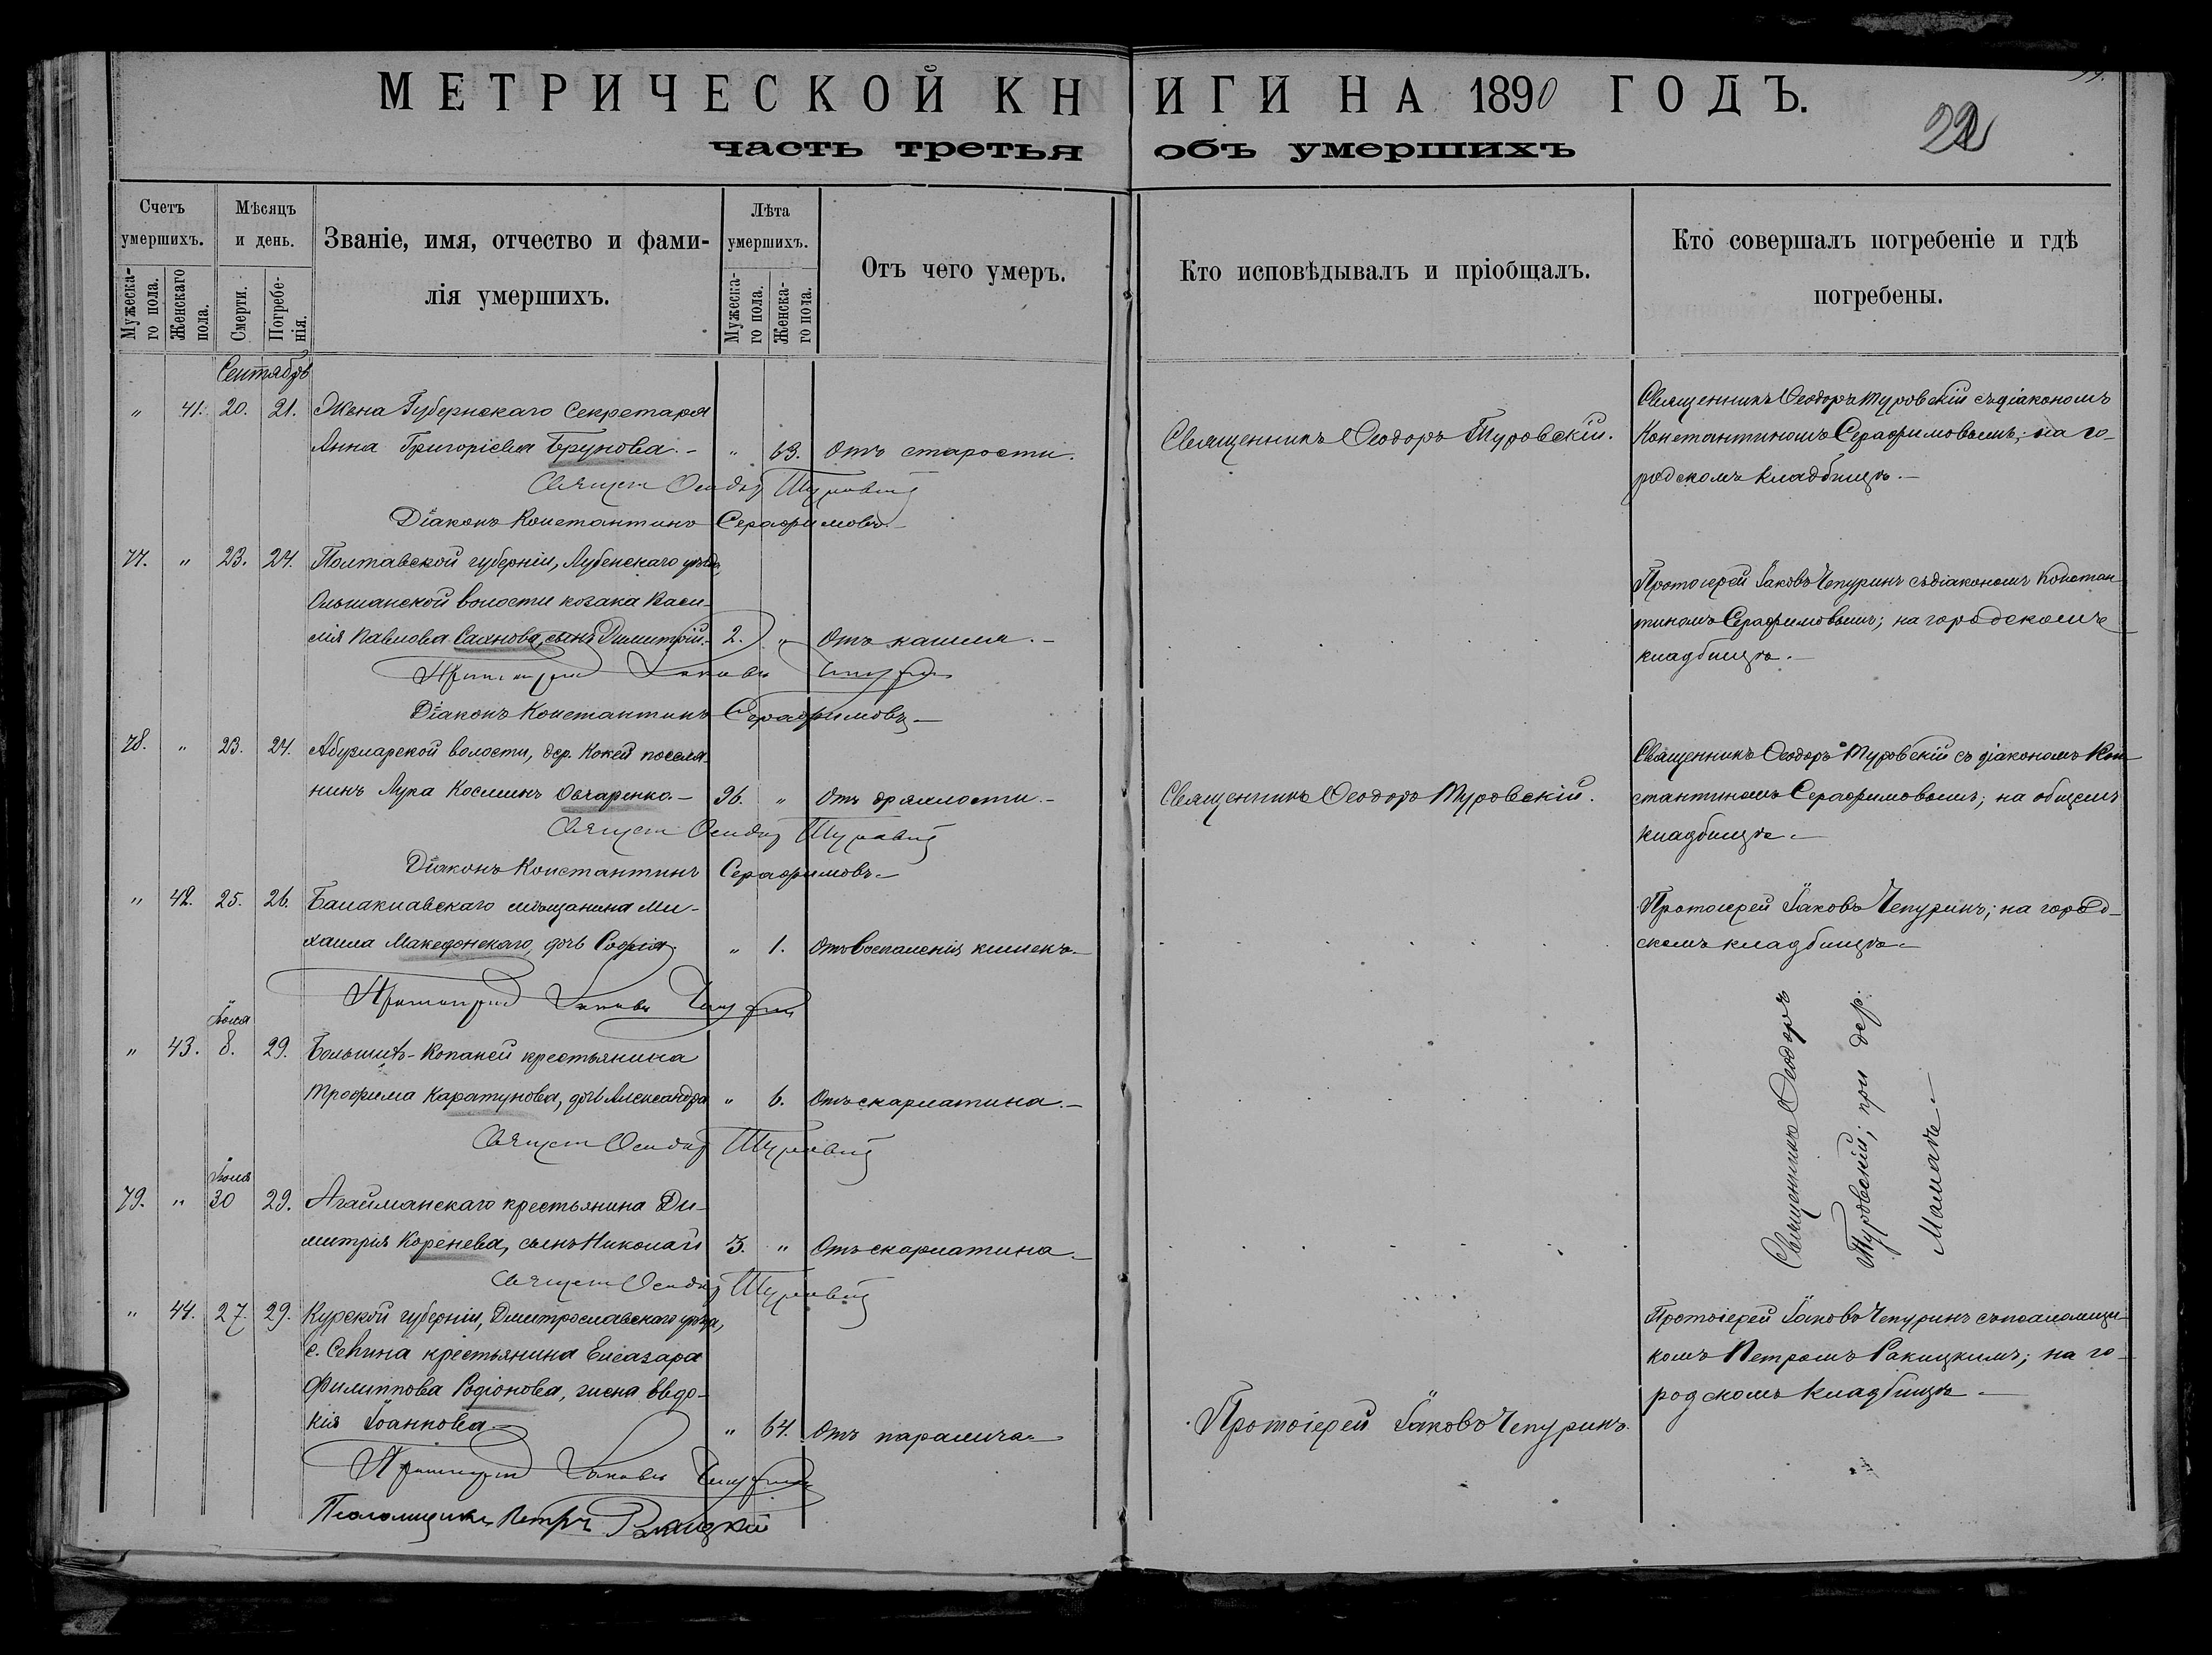 МЕТРИЧЕСКОЙ КНИГИ НА 1890 ГОДЪ.
часть третья объ умершихъ
22
Счетъ умершихъ.
Мужеска-
го пола.
Женскаго
пола.
Мѣсяцъ
и день.
Смерти.
Погребе-
нія.
Званіе, имя, отчество и фами-
лія умершихъ.
Лѣта
умершихъ.
Мужеска-
го пола.
Женска-
го пола.
Отъ чего умеръ.
Кто исповѣдывалъ и пріобщалъ.
Кто совершалъ погребеніе и гдѣ
погребены.
Сентябрь
" 41. 20. 21. Жена Губернскаго Секретаря
Анна Григоріева Брунова.- " 63. Отъ старости.
Священникъ Ѳеодоръ Туровскій.
Священникъ Ѳеодоръ Туровскій съ діакономъ
Константиномъ Серафимовымъ; на го-
родскомъ кладбищѣ.-
Священ Ѳеодоръ Туровскій
Діаконъ Константинъ Серафимовъ.-
77. " 23. 24. Полтавской губерніи, Лубенскаго уѣзда,
Ольшанской волости козака Васи-
лія Павлова сынъ Димитрій.- 2. " Отъ кашля.-
Протоіерей Іаковъ Чепуринъ съ діакономъ Констан-
тиномъ Серафимовымъ; на городскомъ
кладбищѣ.-
Протоіерей Іаковъ Чепуринъ
Діаконъ Константинъ Серафимовъ.-
78. " 23. 24. Абузларской волости, дер. Кокей поселя-
нинъ Лука Косминъ Овчаренко.- 96. " Отъ дряхлости.-
Священникъ Ѳеодоръ Туровскій.
Священникъ Ѳеодоръ Туровскій съ діакономъ Кон-
стантиномъ Серафимовымъ; на общемъ
кладбищѣ.-
Священ Ѳеодоръ Туровскій
Діаконъ Константинъ Серафимовъ.-
" 42. 25. 26. Балаклавскаго мѣщанина Ми-
хаила Македонскаго, дочь Софія. " 1. Отъ воспаленія кишекъ.-
Протоіерей Іаковъ Чепуринъ; на город-
скомъ кладбищѣ.-
Протоіерей Іаковъ Чепуринъ
Іюля
" 43. 8. 29. Большихъ-Копаней крестьянина
Трофима Каратунова, дочь Александра " 6. Отъ скарлатина.-
Священникъ Ѳеодоръ
Туровскій; при дер.
Мамаѣ.-
Священ Ѳеодоръ Туровскій
Іюля
79. " 30 29. Агайманскаго крестьянина Ди-
митрія Коренева, сынъ Николай 3. " Отъ скарлатина.-
Священ Ѳеодоръ Туровскій
" 44. 27. 29. Курской губерніи, Дмитрославскаго уѣзда,
с. крестьянина Елеазара
Филиппова Родіонова, жена Евдо-
кія Іоаннова.- " 64. Отъ паралича.-
Протоіерей Іаковъ Чепуринъ.
Протоіерей Іаковъ Чепуринъ съ псаломщи-
комъ Петромъ Ракицкимъ; на го-
родскомъ кладбищѣ.-
Протоіерей Іаковъ Чепуринъ
Псаломщикъ Петръ Ракицкій